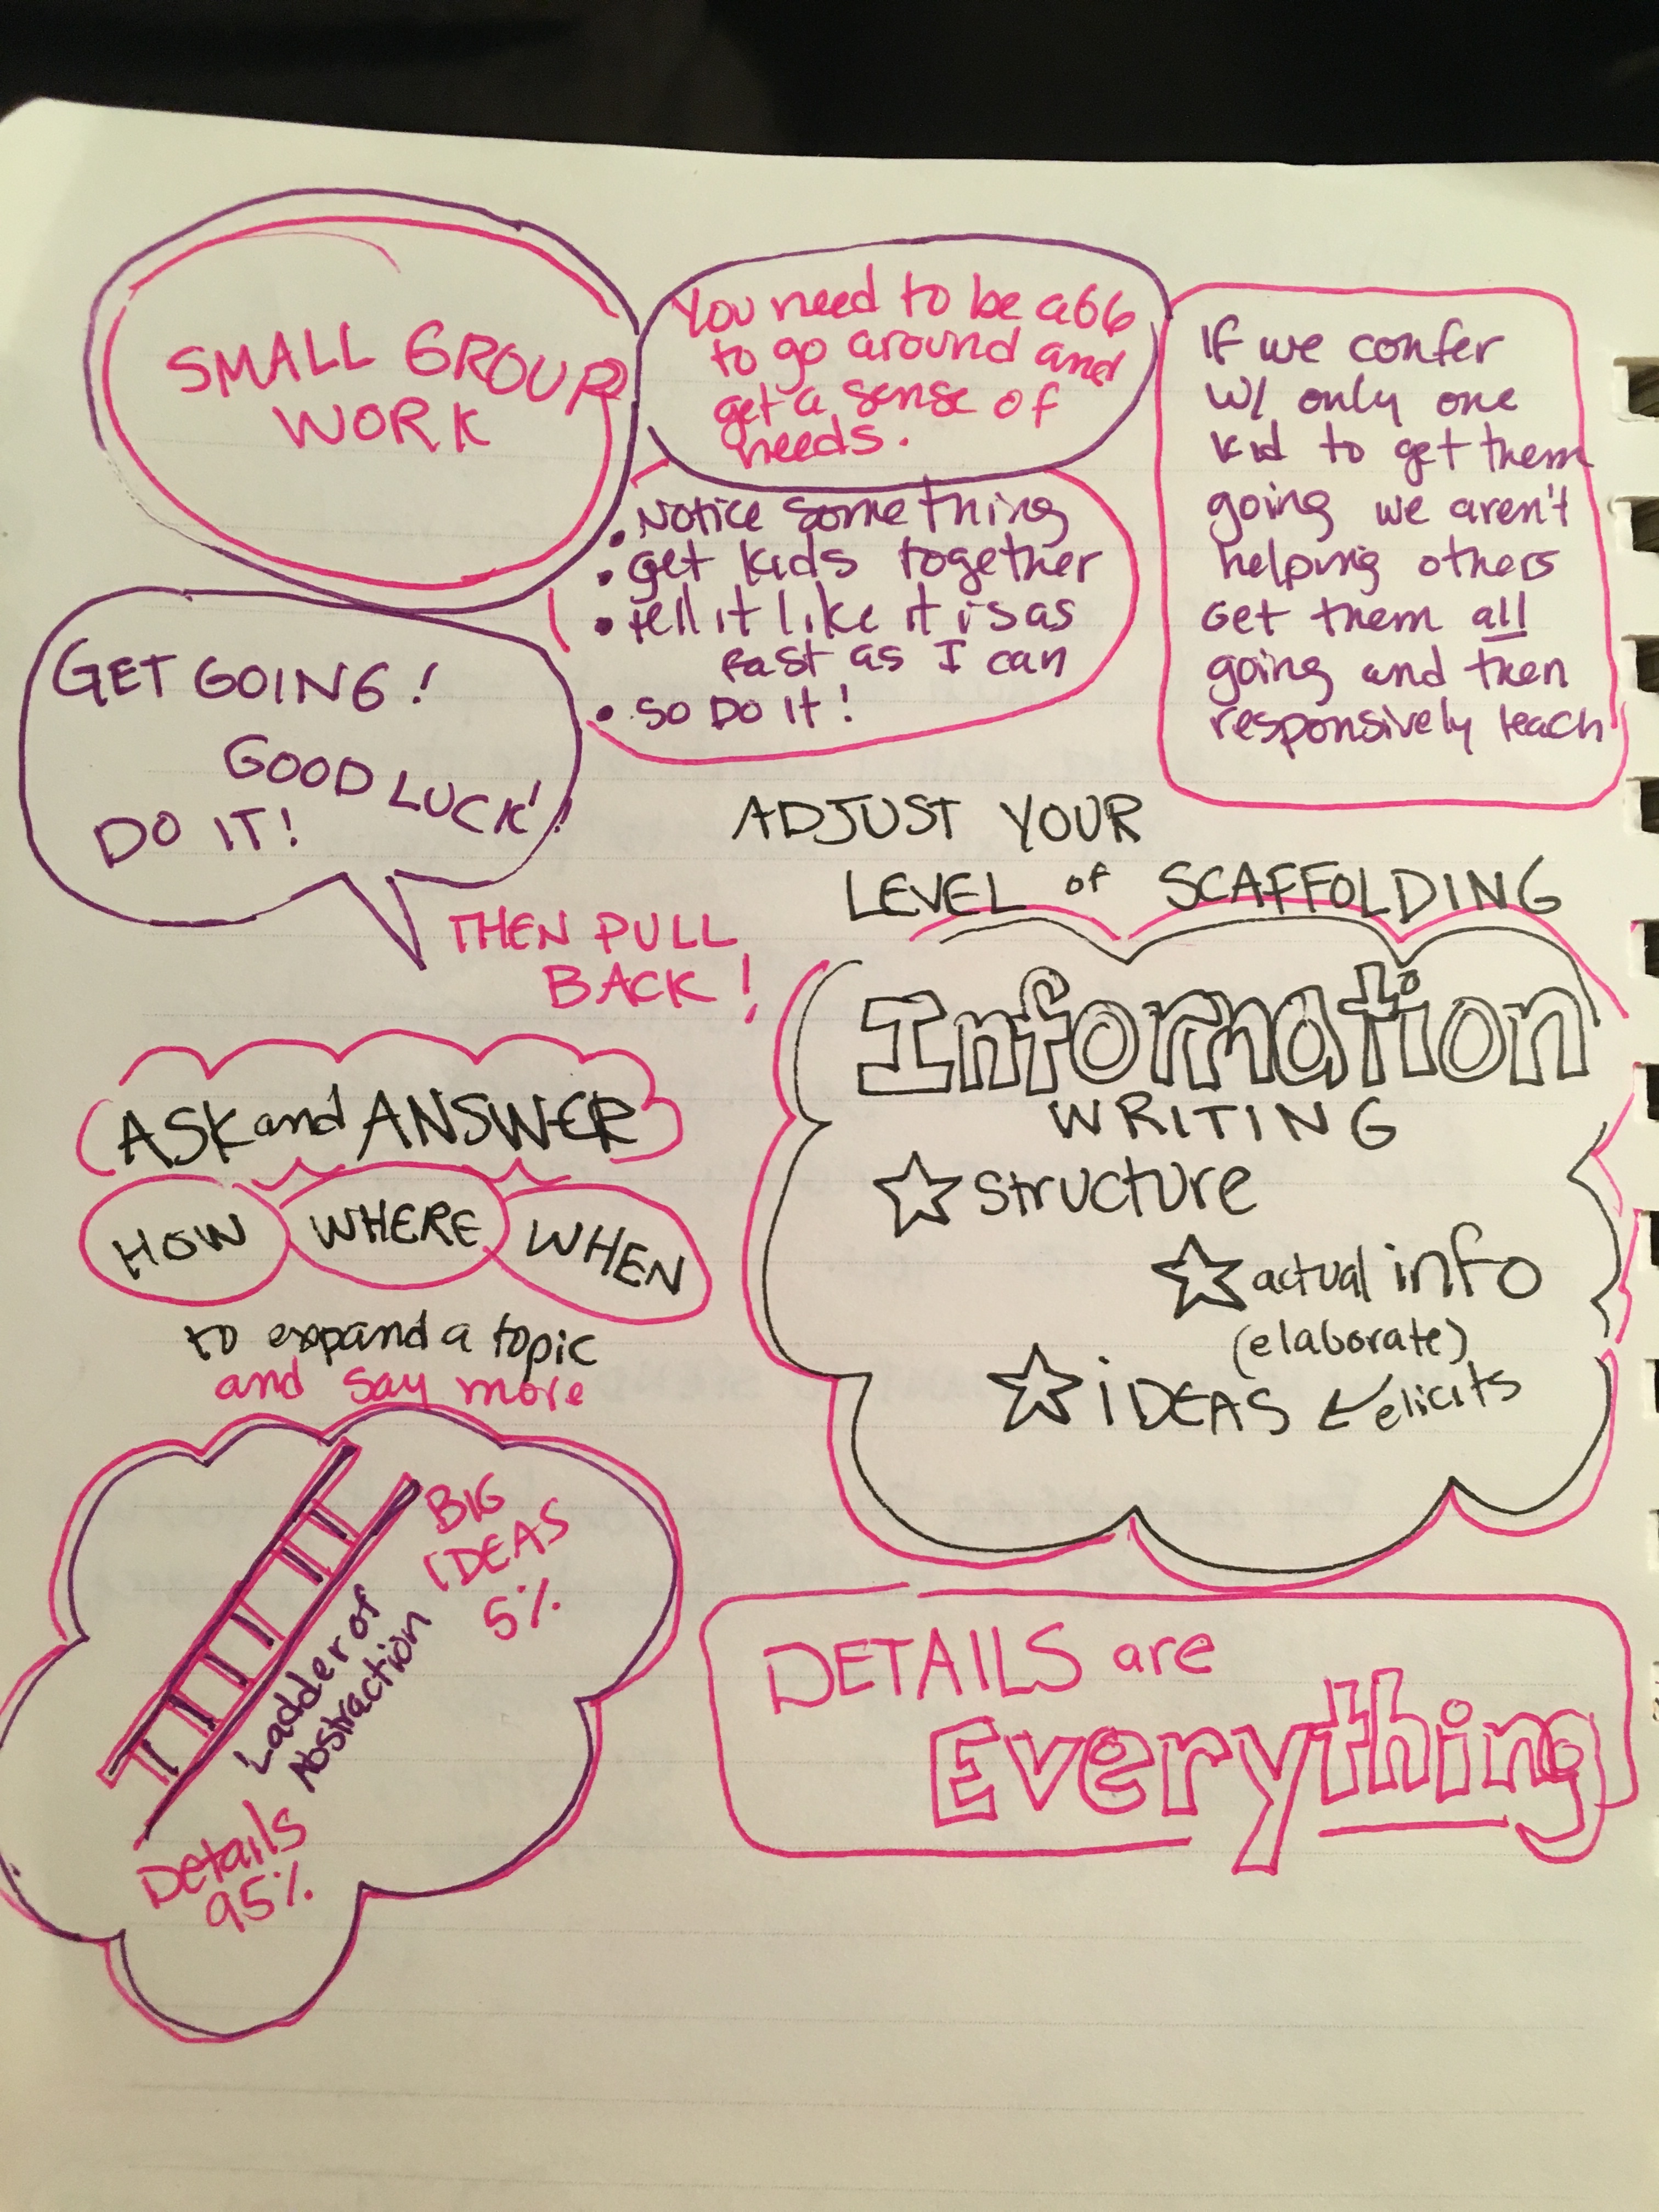 SMALL GROUP
WORK
You need to be able
to go around and
get a sense of
needs.
• Notice something
• get kids together
• tell it like it is as
fast as I can
• SO DO it!
If we confer
w/ only one
kid to get them
going we aren't
helping others
Get them all
going and then
responsively teach
GET GOING!
GOOD LUCK!
DO IT!
THEN PULL
BACK!
ADJUST YOUR
LEVEL of SCAFFOLDING
Information
WRITING
☆ structure
☆ actual info
(elaborate)
☆ iDEAS ← elicits
ASK and ANSWER
HOW WHERE WHEN
to expand a topic
and say more
BIG
IDEAS
5%
Ladder of
Abstraction
Details
95%
DETAILS are
Everything